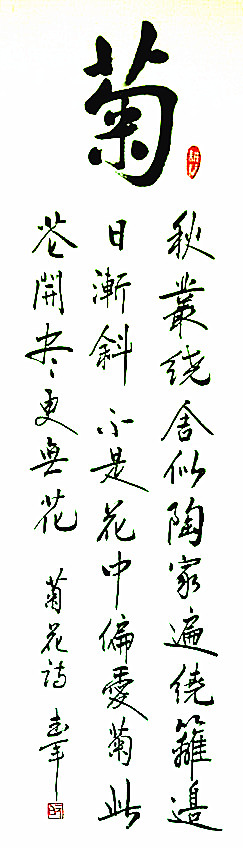 菊
秋叢绕舍似陶家遍繞籬邊
日漸斜不是花中偏愛菊此
花開尽更無花 菊花詩